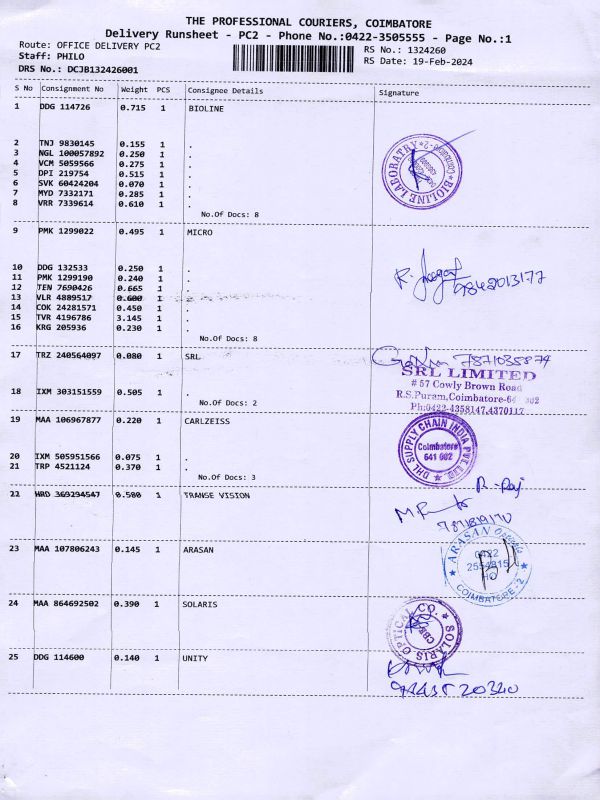 THE PROFESSIONAL COURIERS, COIMBATORE
Delivery Runsheet - PC2 - Phone No.:0422-3505555 - Page No.:1
Route: OFFICE DELIVERY PC2 RS No.: 1324260
Staff: PHILO RS Date: 19-Feb-2024
DRS No.: DCJB132426001
S No Consignment No Weight PCS Consignee Details Signature
1 DDG 114726 0.715 1 BIOLINE
2 TNJ 9830145 0.155 1 .
3 NGL 100057892 0.250 1 .
4 VCM 5059566 0.275 1 .
5 DPI 219754 0.515 1 .
6 SVK 60424204 0.070 1 .
7 MYD 7332171 0.285 1 .
8 VRR 7339614 0.610 1 .
BIOLINE LABORATRY
No.Of Docs: 8
9 PMK 1299022 0.495 1 MICRO
10 DDG 132533 0.250 1 .
11 PMK 1299190 0.240 1 .
12 TEN 7690426 0.665 1 .
13 VLR 4889517 0.600 1 .
14 COK 24281571 0.450 1 .
15 TVR 4196786 3.145 1 .
16 KRG 205936 0.230 1 .
No.Of Docs: 8
17 TRZ 240564097 0.080 1 SRL
7871035874
SRL LIMITED
# 57 Cowly Brown Road
R.S.Puram,Coimbatore-64
Ph:0422-4358147,4370117
18 IXM 303151559 0.505 1 .
No.Of Docs: 2
19 MAA 106967877 0.220 1 CARLZEISS
DHL SUPPLY CHAIN INDIA PVT. LTD.
Coimbatore
641 002
20 IXM 505951566 0.075 1 .
21 TRP 4521124 0.370 1 .
No.Of Docs: 3
22 HRD 369294547 0.500 1 TRANSE VISION
23 MAA 107806243 0.145 1 ARASAN
ARASAN
0422
HO
COIMBATORE-2
24 MAA 864692502 0.390 1 SOLARIS
SOLARIS OPTICAL CO.
CBE
25 DDG 114600 0.140 1 UNITY